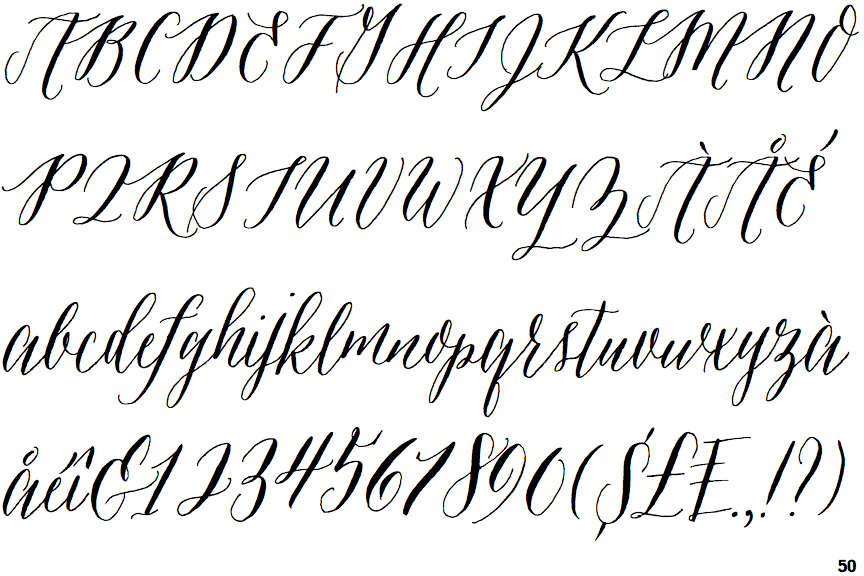 ABCDEFGHIJKLMNO
PQRSTUVWXYZÀÅÉ
abcdefghijklmnopqrstuvwxyzà
åéî&1234567890($£€.,!?)
50